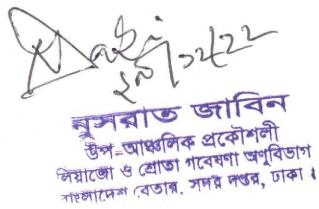 ২৮/১২/২২
নুসরাত জাবিন
উপ-আঞ্চলিক প্রকৌশলী
লিয়াজো ও শ্রোতা গবেষণা অণুবিভাগ
বাংলাদেশ বেতার, সদর দপ্তর, ঢাকা।